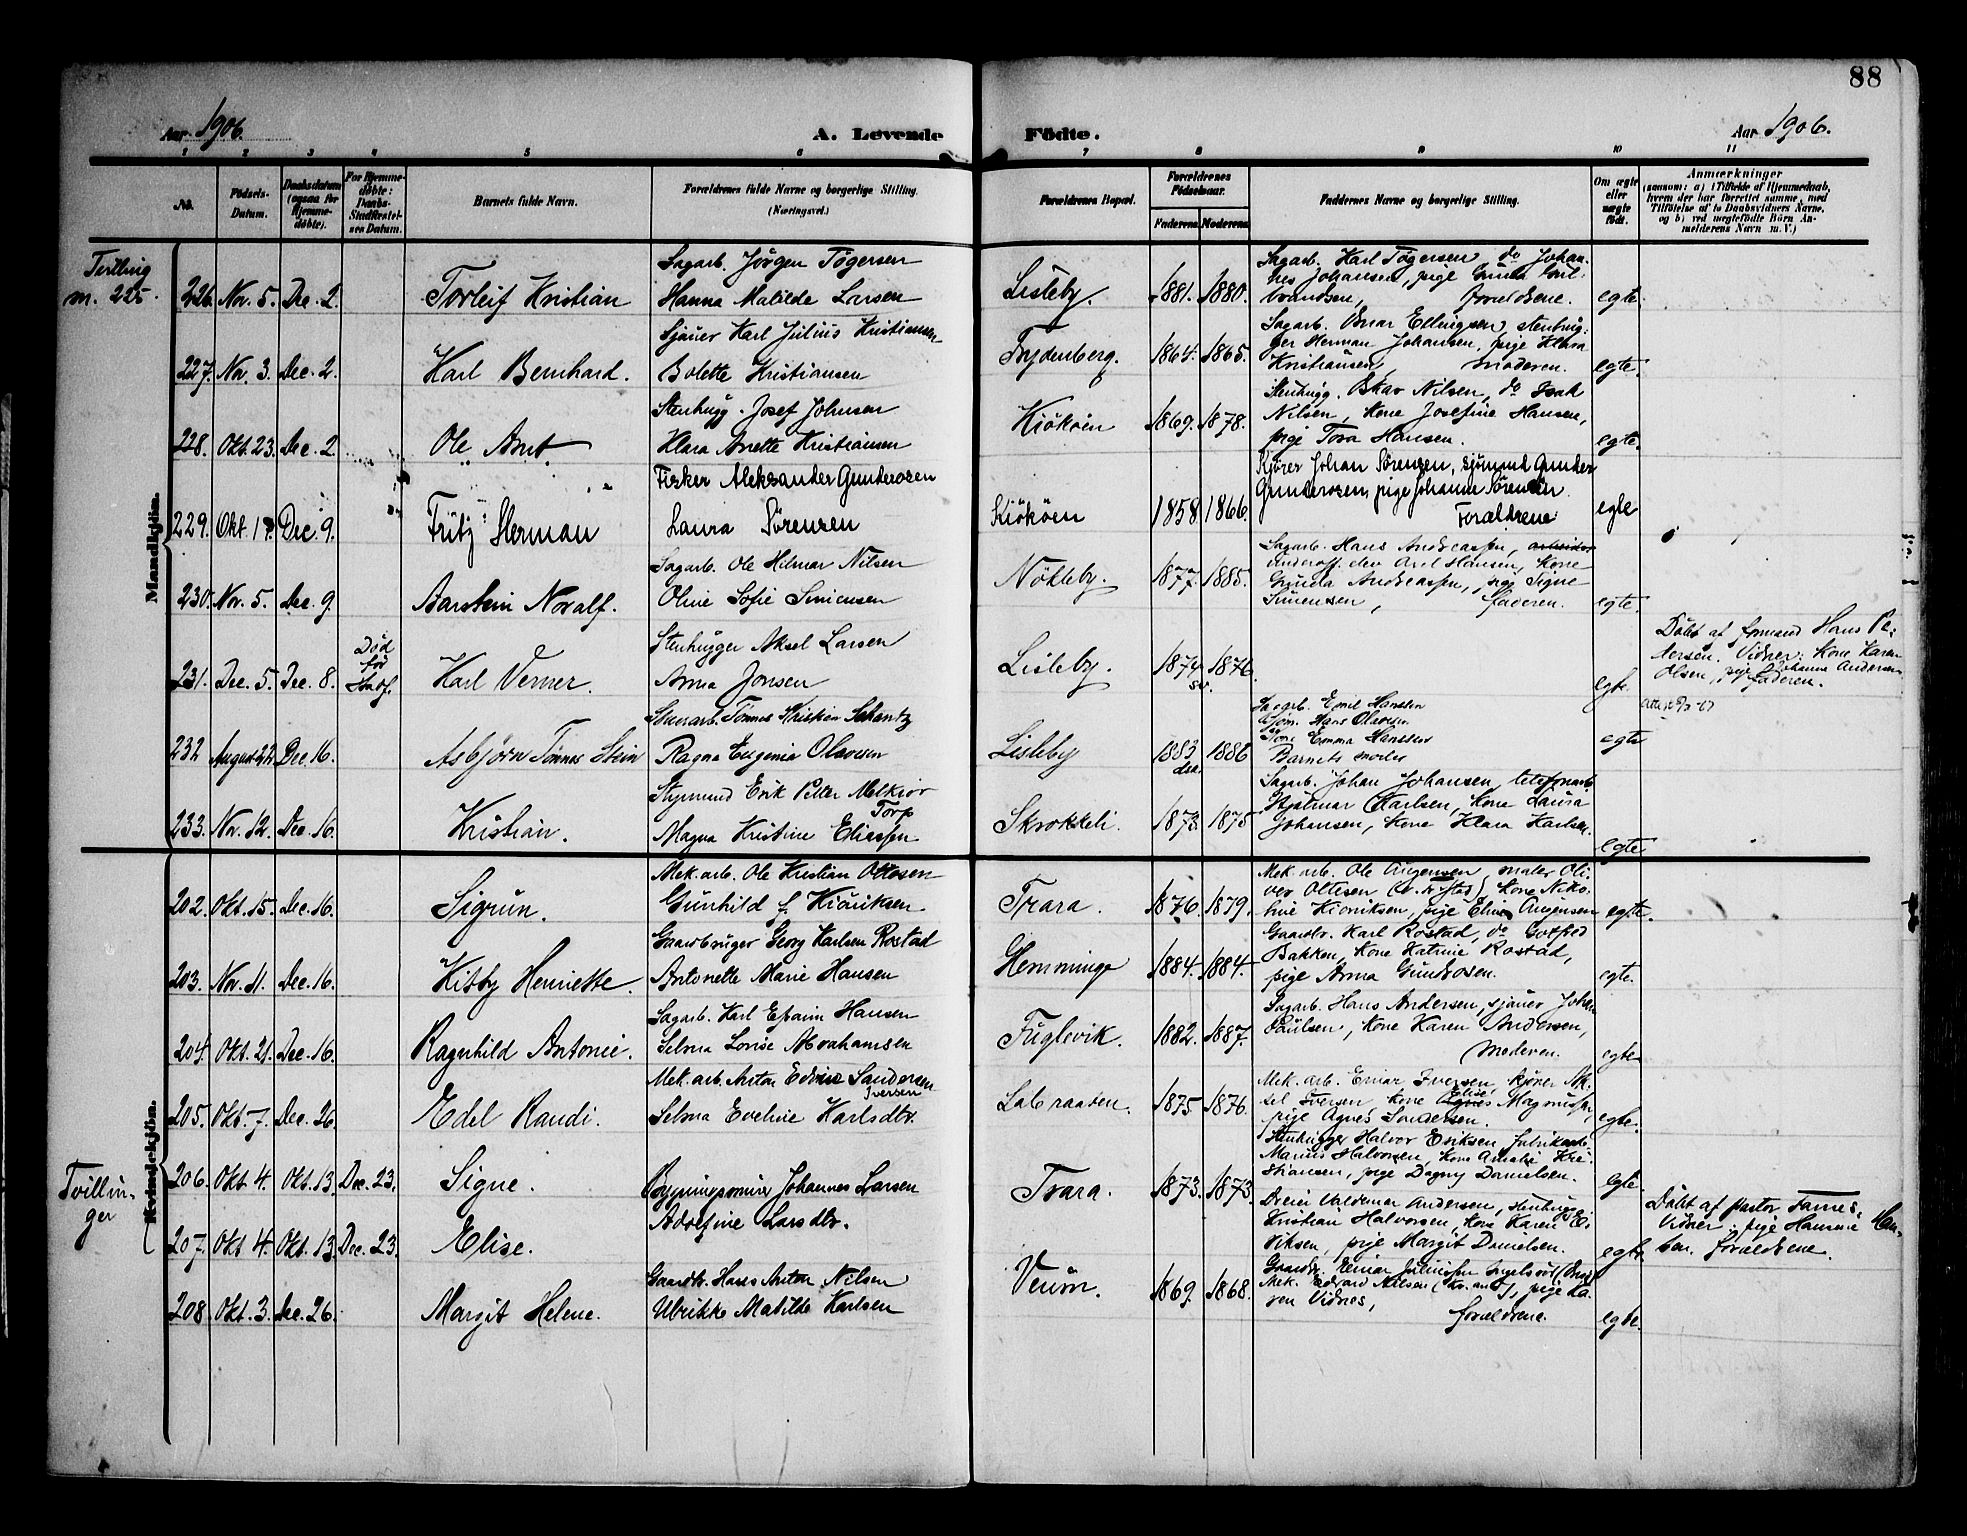 88
Aar 1906.
A. Levende Födte.
Aar 1906.
1 2 3 4 5 6 7 8 9 10 11
No.
Födsels-Datum.
Daabsdatum (ogsaa for Hjemmedöbte).
For Hjemmedöbte: Daabs-Stadfæstelsens Datum.
Barnets fulde Navn.
Forældrenes fulde Navne og borgerlige Stilling. (Næringsvei.)
Forældrenes Bopæl.
Forældrenes Födselsaar.
Faderens Moderens
Faddernes Navne og borgerlige Stilling.
Om ægte eller uægte födt.
Anmærkninger
(saasom: a) i Tilfælde af Hjemmedaab, hvem der har forrettet samme, med Tilföielse af to Daabsvidners Navne, og b) ved uegtefödte Börn Anmelderens Navn m. V.)
Mandkjön.
Tvilling m. 225.
226. Nov. 5. Dec. 2. Torleif Kristian
Sagarb. Jörgen Tögersen
Hanna Matilde Larsen
Lisleby. 1881. 1880.
Sagarb. Karl Tögersen, do Johan-
nes Johansen, pige Gunda
Forældrene. egte.
227. Nov. 3. Dec. 2. Karl Bernhard.
Sjauer Karl Julius Kristiansen
Bolette Kristiansen
Trydenberg. 1864. 1865.
Sagarb. Ellingsen, stenhug-
ger Herman Johansen, pige Klara
Kristiansen, moderen. egte.
228. Okt. 23. Dec. 2 Ole Arnt
Stenhugg. Josef Johnsen
Klara Anette Kristiansen
Kiököen 1869. 1878.
Stenhugg. Oskar Nilsen, do Isak
Nilsen, Kone Josefine Hansen,
pige Tora Hansen. egte.
229. Okt. Dec. 9. Fritz Herman
Fisker Aleksander Gundersen
Laura Sörensen
Kiököen 1858 1866.
Kjörer Johan Sörensen, sjömand Gunder
Gundersen, pige Johanne Sörensen
Forældrene egte
230. Nov. 5. Dec. 9 Barstein Noralf.
Sagarb. Ole Hilmar Nilsen
Oline Sofie Simensen
Nökleby. 1877. 1885.
Sagarb. Hans Andreassen, arbeider
underoff. elev Axel Hansen, Kone
Gunda Andreassen, pige Signe
Simensen, faderen. egte.
231. Dec. 5. Dec. 8. Död før Stadf. Karl Verner.
Stenhugger Aksel Larsen
Anna Jonsen
Lisleby. 1874 sv. 1876 egte.
Döbt af formand Hans Pe-
tersen. Vidner: Kone Karen
Olsen, pige Johanna Andersen
faderen.
232 August 22 Dec. 16. Asbjørn Tönnes Stein
Stuerarb. Tönnes Kristian Schantz
Ragna Eugenia Olavesen
Lisleby 1883 dsa. 1886
Sagarb. Emil Hanssen
Sjöm. Hans Olavesen
Kone Emma Hanssen
Barnets moder egte
233. Nov. 12. Dec. 16. Kristian.
Styrmand Erik Petter Melkior
Torp
Magna Kristine Eliassen
Skrokkeli. 1873. 1875
Sagarb. Johan Johansen, telefonarb.
Hjalmar Karlsen, Kone Laura
Johansen, Kone Klara Karlsen. egte
Kvindekjön.
202. Okt. 15. Dec. 16. Sigrun.
Mek. arb. Ole Kristian Ottesen
Gunhild f. Hinriksen
Trara. 1876. 1879.
Mek. arb. Ole Augensen, maler Oli-
ver Ottesen (Kone Niko-
line Hinriksen, pige Eline Augensen egte.
203. Nov. 11. Dec. 16. Kitty Henriette.
Gaardbruger Georg Karlsen Rostad
Antonette Marie Hansen
Hemminge 1884. 1884.
Gaardbr. Karl Rostad, do Gotfred
Bakken, Kone Katrine Rostad,
pige Anna Gundersen. egte.
204. Okt. 21. Dec. 16. Ragnhild Antonie.
Sagarb. Karl Efraim Hansen
Selma Lovise Abrahamsen
Fuglevik. 1882. 1887.
Sagarb. Hans Andersen, sjauer Johan
Paulsen, Kone Karen Andersen,
Moderen. egte
205. Okt. 7. Dec. 26 Edel Randi.
Mek. arb. Anton Edvin Sandersen
Iversen
Selma Eveline Karlsdtr.
Labraaten. 1875. 1876.
Mek. arb. Einar Iversen, kjører Ak-
sel Iversen, Kone Agnes Elise Magnussen,
pige Agnes Sandersen. egte.
Tvillin-
ger
206. Okt. 4. Okt. 13. Dec. 23. Signe.
Bygningssnire Johannes Larsen
Adolfine Larsdtr.
Trara. 1873. 1873.
Stenhugger Halvor Eriksen, fabrikarb.
Marius Halvorsen, Kone Amalie Kri-
stiansen, pige Dagny Danielsen. egte.
207. Okt. 4. Okt. 13. Dec. 23. Elise.
Dreier Valdemar Andersen, stenhugg.
Kristian Halvorsen, Kone Karen E-
riksen, pige Margit Danielsen. egte.
Döbt af pastor
Vidner: pige Hanne Han-
sen, forældrene.
208. Okt. 3. Dec. 26. Margit Helene.
Gaardbr. Hans Anton Nilsen
Ulrikke Matilde Karlsen
Veum. 1869. 1868.
Gaardbr. Einar Juliussen
Mek. Edvard Nilsen pige Ka-
ren Vidnes,
forældrene. egte.